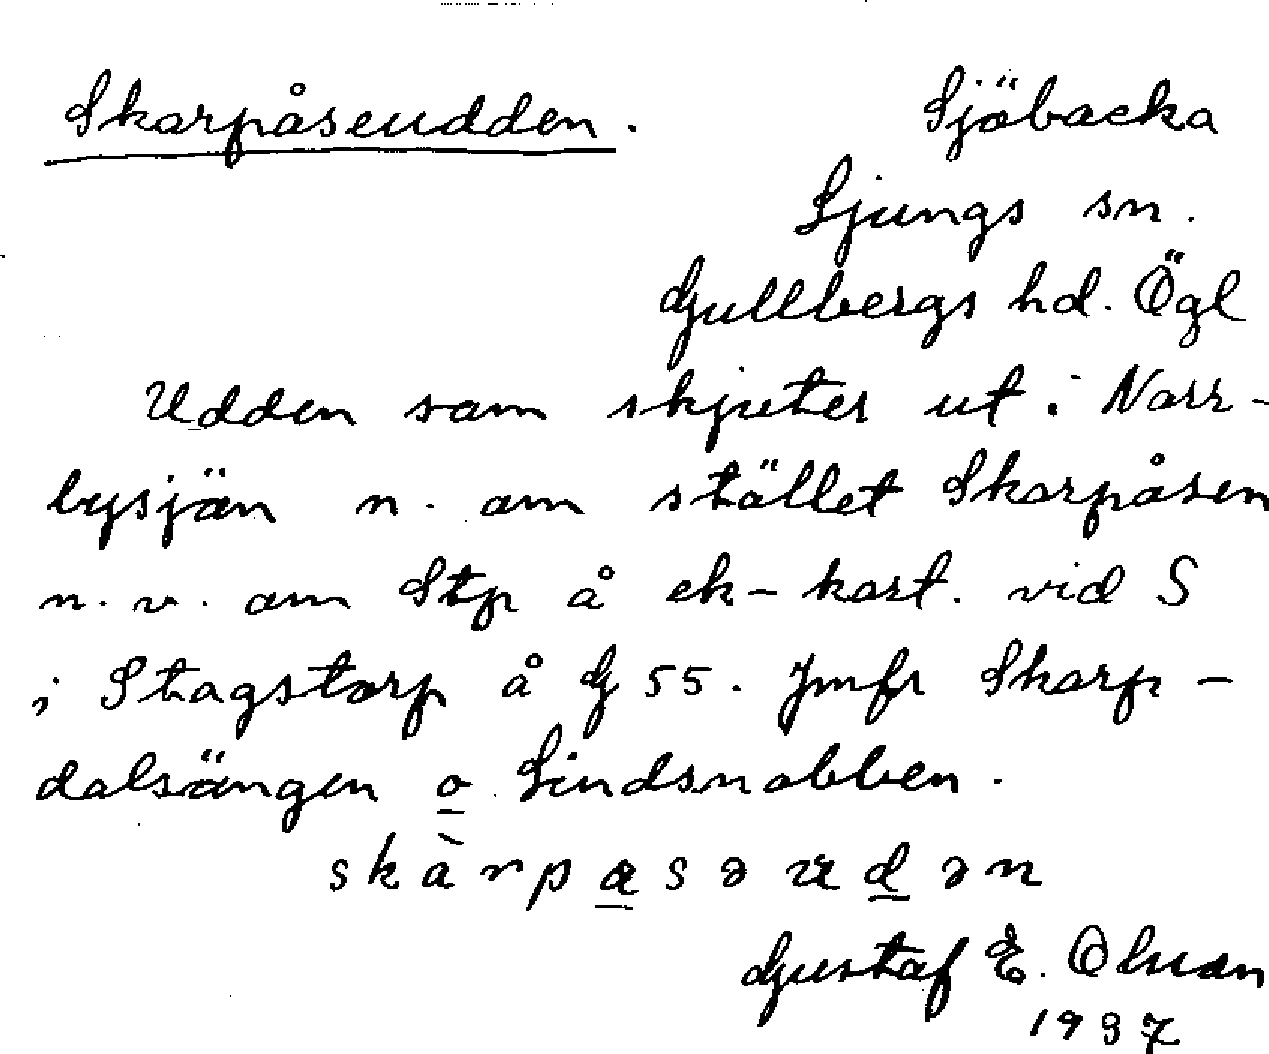 Skarpåseudden.
Sjöbacka
Ljungs sn.
Gullbergs hd. Ögl
Udden som skjuter ut i Norr-
bysjön n. om stället Skarpåsen
n.v. om Stp å ek-kart. vid S
i Stagstorp å G 55. Jmfr Skarp-
dalsängen o Lindsnabben.
skàrpasəudən
Gustaf E. Olsson
1937